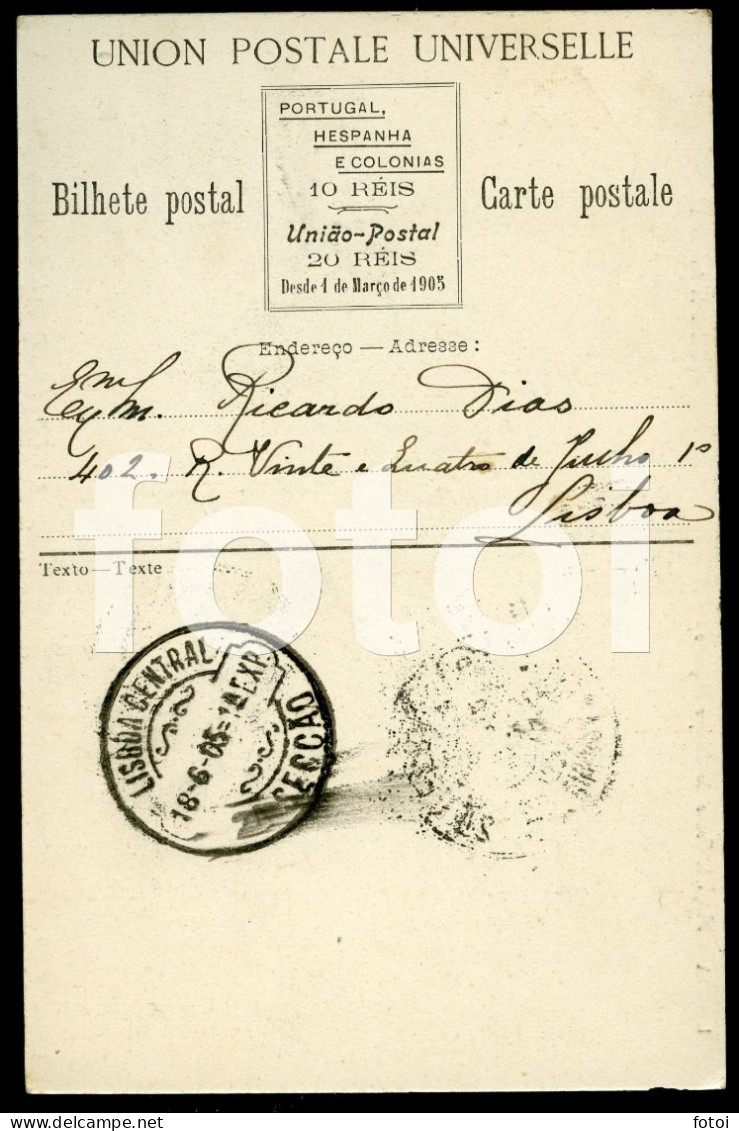 UNION POSTALE UNIVERSELLE
PORTUGAL,
HESPANHA
E COLONIAS
10 RÉIS
União-Postal
20 RÉIS
Desde 1 de Março de 1905
Bilhete postal
Carte postale
Endereço — Adresse:
Exmo. Ricardo Dias
402. R. Vinte e Quatro de Julho 1º
Lisboa
Texto—Texte
fotoi
LISBOA CENTRAL
18-6-05
EXP.
SECCÃO
fotoi